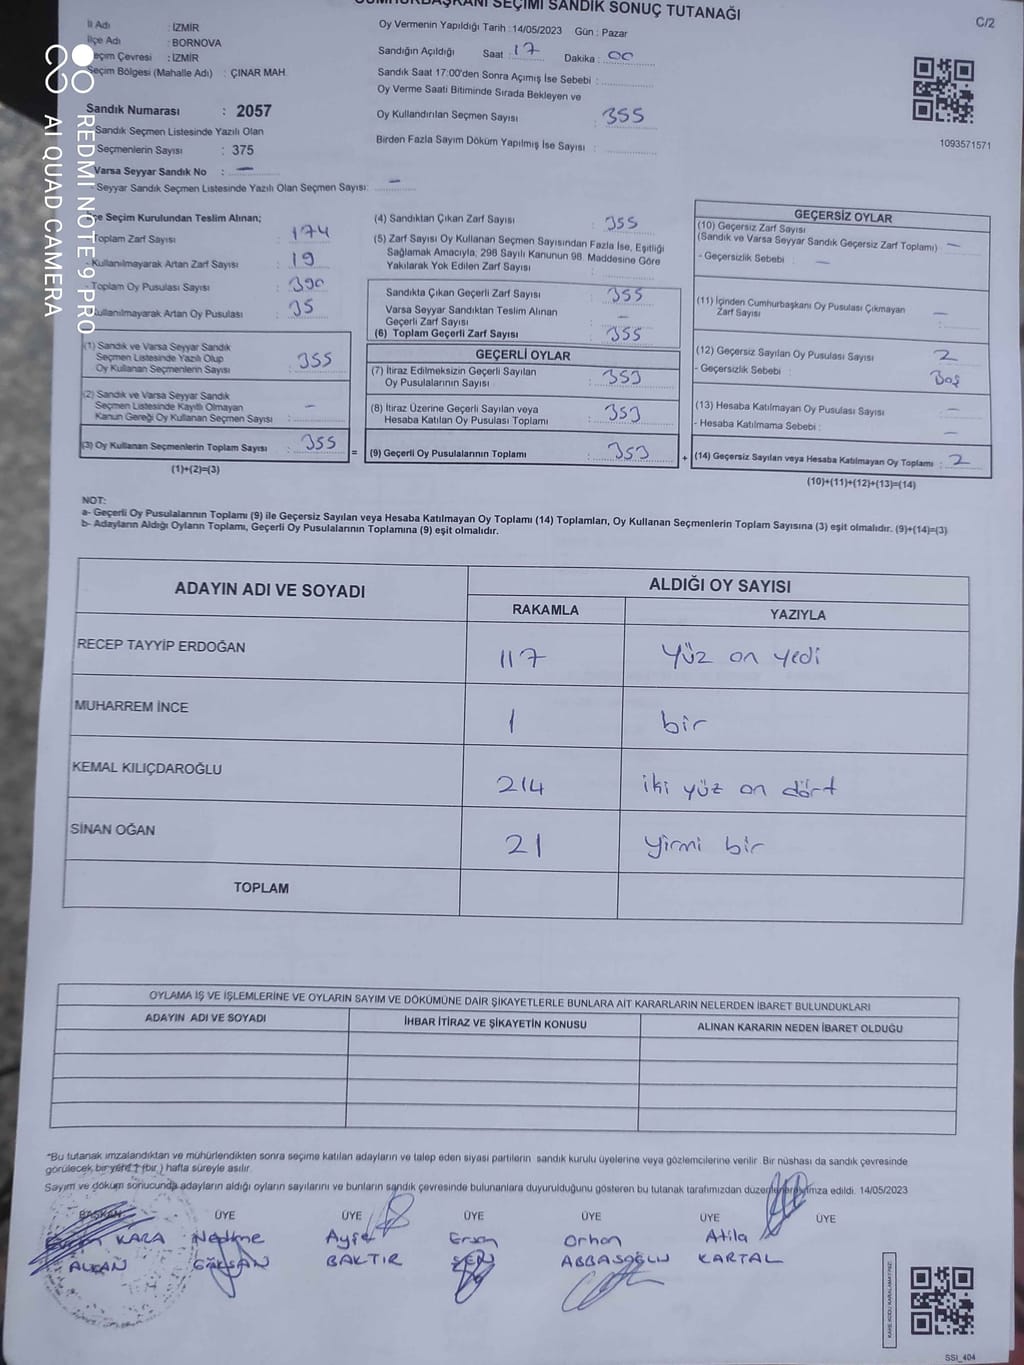 CUMHURBAŞKANI SEÇİMİ SANDIK SONUÇ TUTANAĞI
C/2
İl Adı : İZMİR
İlçe Adı : BORNOVA
Seçim Çevresi : İZMİR
Seçim Bölgesi (Mahalle Adı) : ÇINAR MAH.
Sandık Numarası : 2057
Sandık Seçmen Listesinde Yazılı Olan
Seçmenlerin Sayısı : 375
Varsa Seyyar Sandık No : —
Seyyar Sandık Seçmen Listesinde Yazılı Olan Seçmen Sayısı: —
Oy Vermenin Yapıldığı Tarih : 14/05/2023 Gün : Pazar
Sandığın Açıldığı Saat : 17 Dakika : 00
Sandık Saat 17:00'den Sonra Açımış İse Sebebi :
Oy Verme Saati Bitiminde Sırada Bekleyen ve
Oy Kullandırılan Seçmen Sayısı : 355
Birden Fazla Sayım Döküm Yapılmış İse Sayısı :
1093571571
REDMI NOTE 9 PRO
AI QUAD CAMERA
İlçe Seçim Kurulundan Teslim Alınan;
Toplam Zarf Sayısı : 174
- Kullanılmayarak Artan Zarf Sayısı : 19
- Toplam Oy Pusulası Sayısı : 390
Kullanılmayarak Artan Oy Pusulası : 35
(1) Sandık ve Varsa Seyyar Sandık
Seçmen Listesinde Yazılı Olup
Oy Kullanan Seçmenlerin Sayısı : 355
(2) Sandık ve Varsa Seyyar Sandık
Seçmen Listesinde Kayıtlı Olmayan
Kanun Gereği Oy Kullanan Seçmen Sayısı : —
(3) Oy Kullanan Seçmenlerin Toplam Sayısı : 355
(1)+(2)=(3)
=
(4) Sandıktan Çıkan Zarf Sayısı : 355
(5) Zarf Sayısı Oy Kullanan Seçmen Sayısından Fazla İse, Eşitliği
Sağlamak Amacıyla, 298 Sayılı Kanunun 98. Maddesine Göre
Yakılarak Yok Edilen Zarf Sayısı :
Sandıkta Çıkan Geçerli Zarf Sayısı : 355
Varsa Seyyar Sandıktan Teslim Alınan
Geçerli Zarf Sayısı : —
(6) Toplam Geçerli Zarf Sayısı : 355
GEÇERLİ OYLAR
(7) İtiraz Edilmeksizin Geçerli Sayılan
Oy Pusulalarının Sayısı : 353
(8) İtiraz Üzerine Geçerli Sayılan veya
Hesaba Katılan Oy Pusulası Toplamı : 353
(9) Geçerli Oy Pusulalarının Toplamı : 353
+
GEÇERSİZ OYLAR
(10) Geçersiz Zarf Sayısı
(Sandık ve Varsa Seyyar Sandık Geçersiz Zarf Toplamı) : —
- Geçersizlik Sebebi : —
(11) İçinden Cumhurbaşkanı Oy Pusulası Çıkmayan
Zarf Sayısı : —
(12) Geçersiz Sayılan Oy Pusulası Sayısı : 2
- Geçersizlik Sebebi : Boş
(13) Hesaba Katılmayan Oy Pusulası Sayısı : —
- Hesaba Katılmama Sebebi : —
(14) Geçersiz Sayılan veya Hesaba Katılmayan Oy Toplamı : 2
(10)+(11)+(12)+(13)=(14)
NOT:
a- Geçerli Oy Pusulalarının Toplamı (9) ile Geçersiz Sayılan veya Hesaba Katılmayan Oy Toplamı (14) Toplamları, Oy Kullanan Seçmenlerin Toplam Sayısına (3) eşit olmalıdır. (9)+(14)=(3)
b- Adayların Aldığı Oyların Toplamı, Geçerli Oy Pusulalarının Toplamına (9) eşit olmalıdır.
ADAYIN ADI VE SOYADI
ALDIĞI OY SAYISI
RAKAMLA YAZIYLA
RECEP TAYYİP ERDOĞAN 117 Yüz on yedi
MUHARREM İNCE 1 bir
KEMAL KILIÇDAROĞLU 214 iki yüz on dört
SİNAN OĞAN 21 yirmi bir
TOPLAM
OYLAMA İŞ VE İŞLEMLERİNE VE OYLARIN SAYIM VE DÖKÜMÜNE DAİR ŞİKAYETLERLE BUNLARA AİT KARARLARIN NELERDEN İBARET BULUNDUKLARI
ADAYIN ADI VE SOYADI İHBAR İTİRAZ VE ŞİKAYETİN KONUSU ALINAN KARARIN NEDEN İBARET OLDUĞU
*Bu tutanak imzalandıktan ve mühürlendikten sonra seçime katılan adayların ve talep eden siyasi partilerin sandık kurulu üyelerine veya gözlemcilerine verilir. Bir nüshası da sandık çevresinde
görülecek bir yere 1 (bir) hafta süreyle asılır.
Sayım ve döküm sonucunda adayların aldığı oyların sayılarını ve bunların sandık çevresinde bulunanlara duyurulduğunu gösteren bu tutanak tarafımızdan düzenlenerek imza edildi. 14/05/2023
BAŞKAN ÜYE ÜYE ÜYE ÜYE ÜYE ÜYE
KARA Nedime Ayşe Ersan Orhan Atila
ALKAN GÖKSAN BAKTIR ŞEN ABBASOĞLU KARTAL
KARE KODU KARALAMAYINIZ
SSI_404